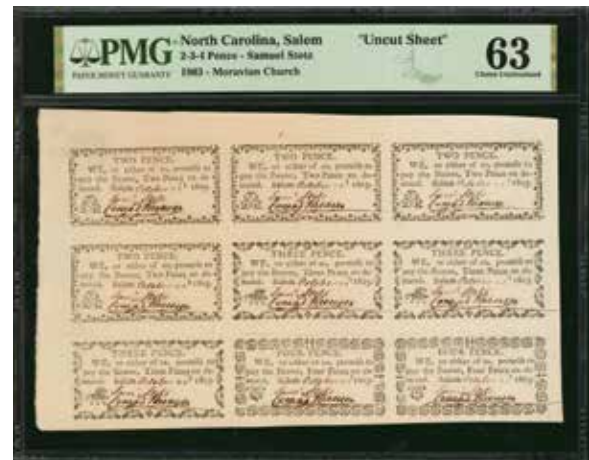 PMG
PAPER MONEY GUARANTY
North Carolina, Salem "Uncut Sheet"
2-3-4 Pence - Samuel Stotz
1803 - Moravian Church
63
Choice Uncirculated
TWO PENCE.
WE, or either of us, promise to
pay the Bearer, Two Pence on de-
mand. Salem October 1803.
TWO PENCE.
WE, or either of us, promise to
pay the Bearer, Two Pence on de-
mand. Salem October 1803.
TWO PENCE.
WE, or either of us, promise to
pay the Bearer, Two Pence on de-
mand. Salem October 1803.
TWO PENCE.
WE, or either of us, promise to
pay the Bearer, Two Pence on de-
mand. Salem October 1803.
THREE PENCE.
WE, or either of us, promise to
pay the Bearer, Three Pence on de-
mand. Salem October 1803.
THREE PENCE.
WE, or either of us, promise to
pay the Bearer, Three Pence on de-
mand. Salem October 1803.
THREE PENCE.
WE, or either of us, promise to
pay the Bearer, Three Pence on de-
mand. Salem October 1803.
FOUR PENCE.
WE, or either of us, promise to
pay the Bearer, Four Pence on de-
mand. Salem October 1803.
FOUR PENCE.
WE, or either of us, promise to
pay the Bearer, Four Pence on de-
mand. Salem October 1803.